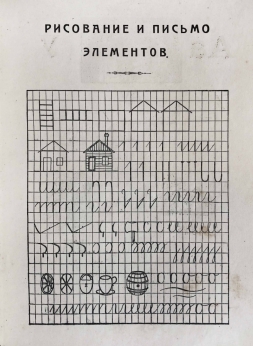 РИСОВАНИЕ И ПИСЬМО
ЭЛЕМЕНТОВ.